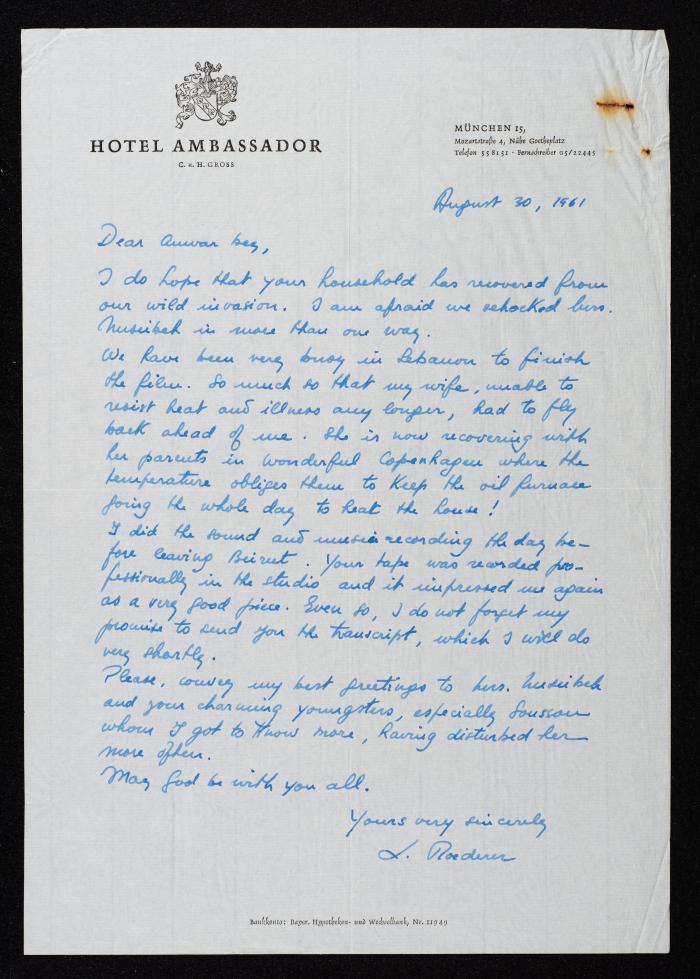 HOTEL AMBASSADOR
C. u. H. GROSS
MÜNCHEN 15,
Mozartstraße 4, Nähe Goetheplatz
Telefon 558151 - Fernschreiber 05/22445
August 30, 1961
Dear Anwar bey,
I do hope that your household has recovered from
our wild invasion. I am afraid we schocked Mrs.
Nuseibeh in more than one way.
We have been very busy in Lebanon to finish
the film. So much so that my wife, unable to
resist heat and illness any longer, had to fly
back ahead of me. She is now recovering with
her parents in wonderful Copenhagen where the
temperature obliges them to keep the oil furnace
going the whole day to heat the house!
I did the sound and music recording the day be-
fore leaving Beirut. Your tape was recorded pro-
fessionally in the studio and it impressed me again
as a very good piece. Even so, I do not forget my
promise to send you the transcript, which I will do
very shortly.
Please, convey my best greetings to Mrs. Nuseibeh
and your charming youngsters, especially Soussou
whom I got to know more, having disturbed her
more often.
May God be with you all.
Yours very sincerely
L. Roederer
Bankkonto: Bayer. Hypotheken- und Wechselbank, Nr. 11949